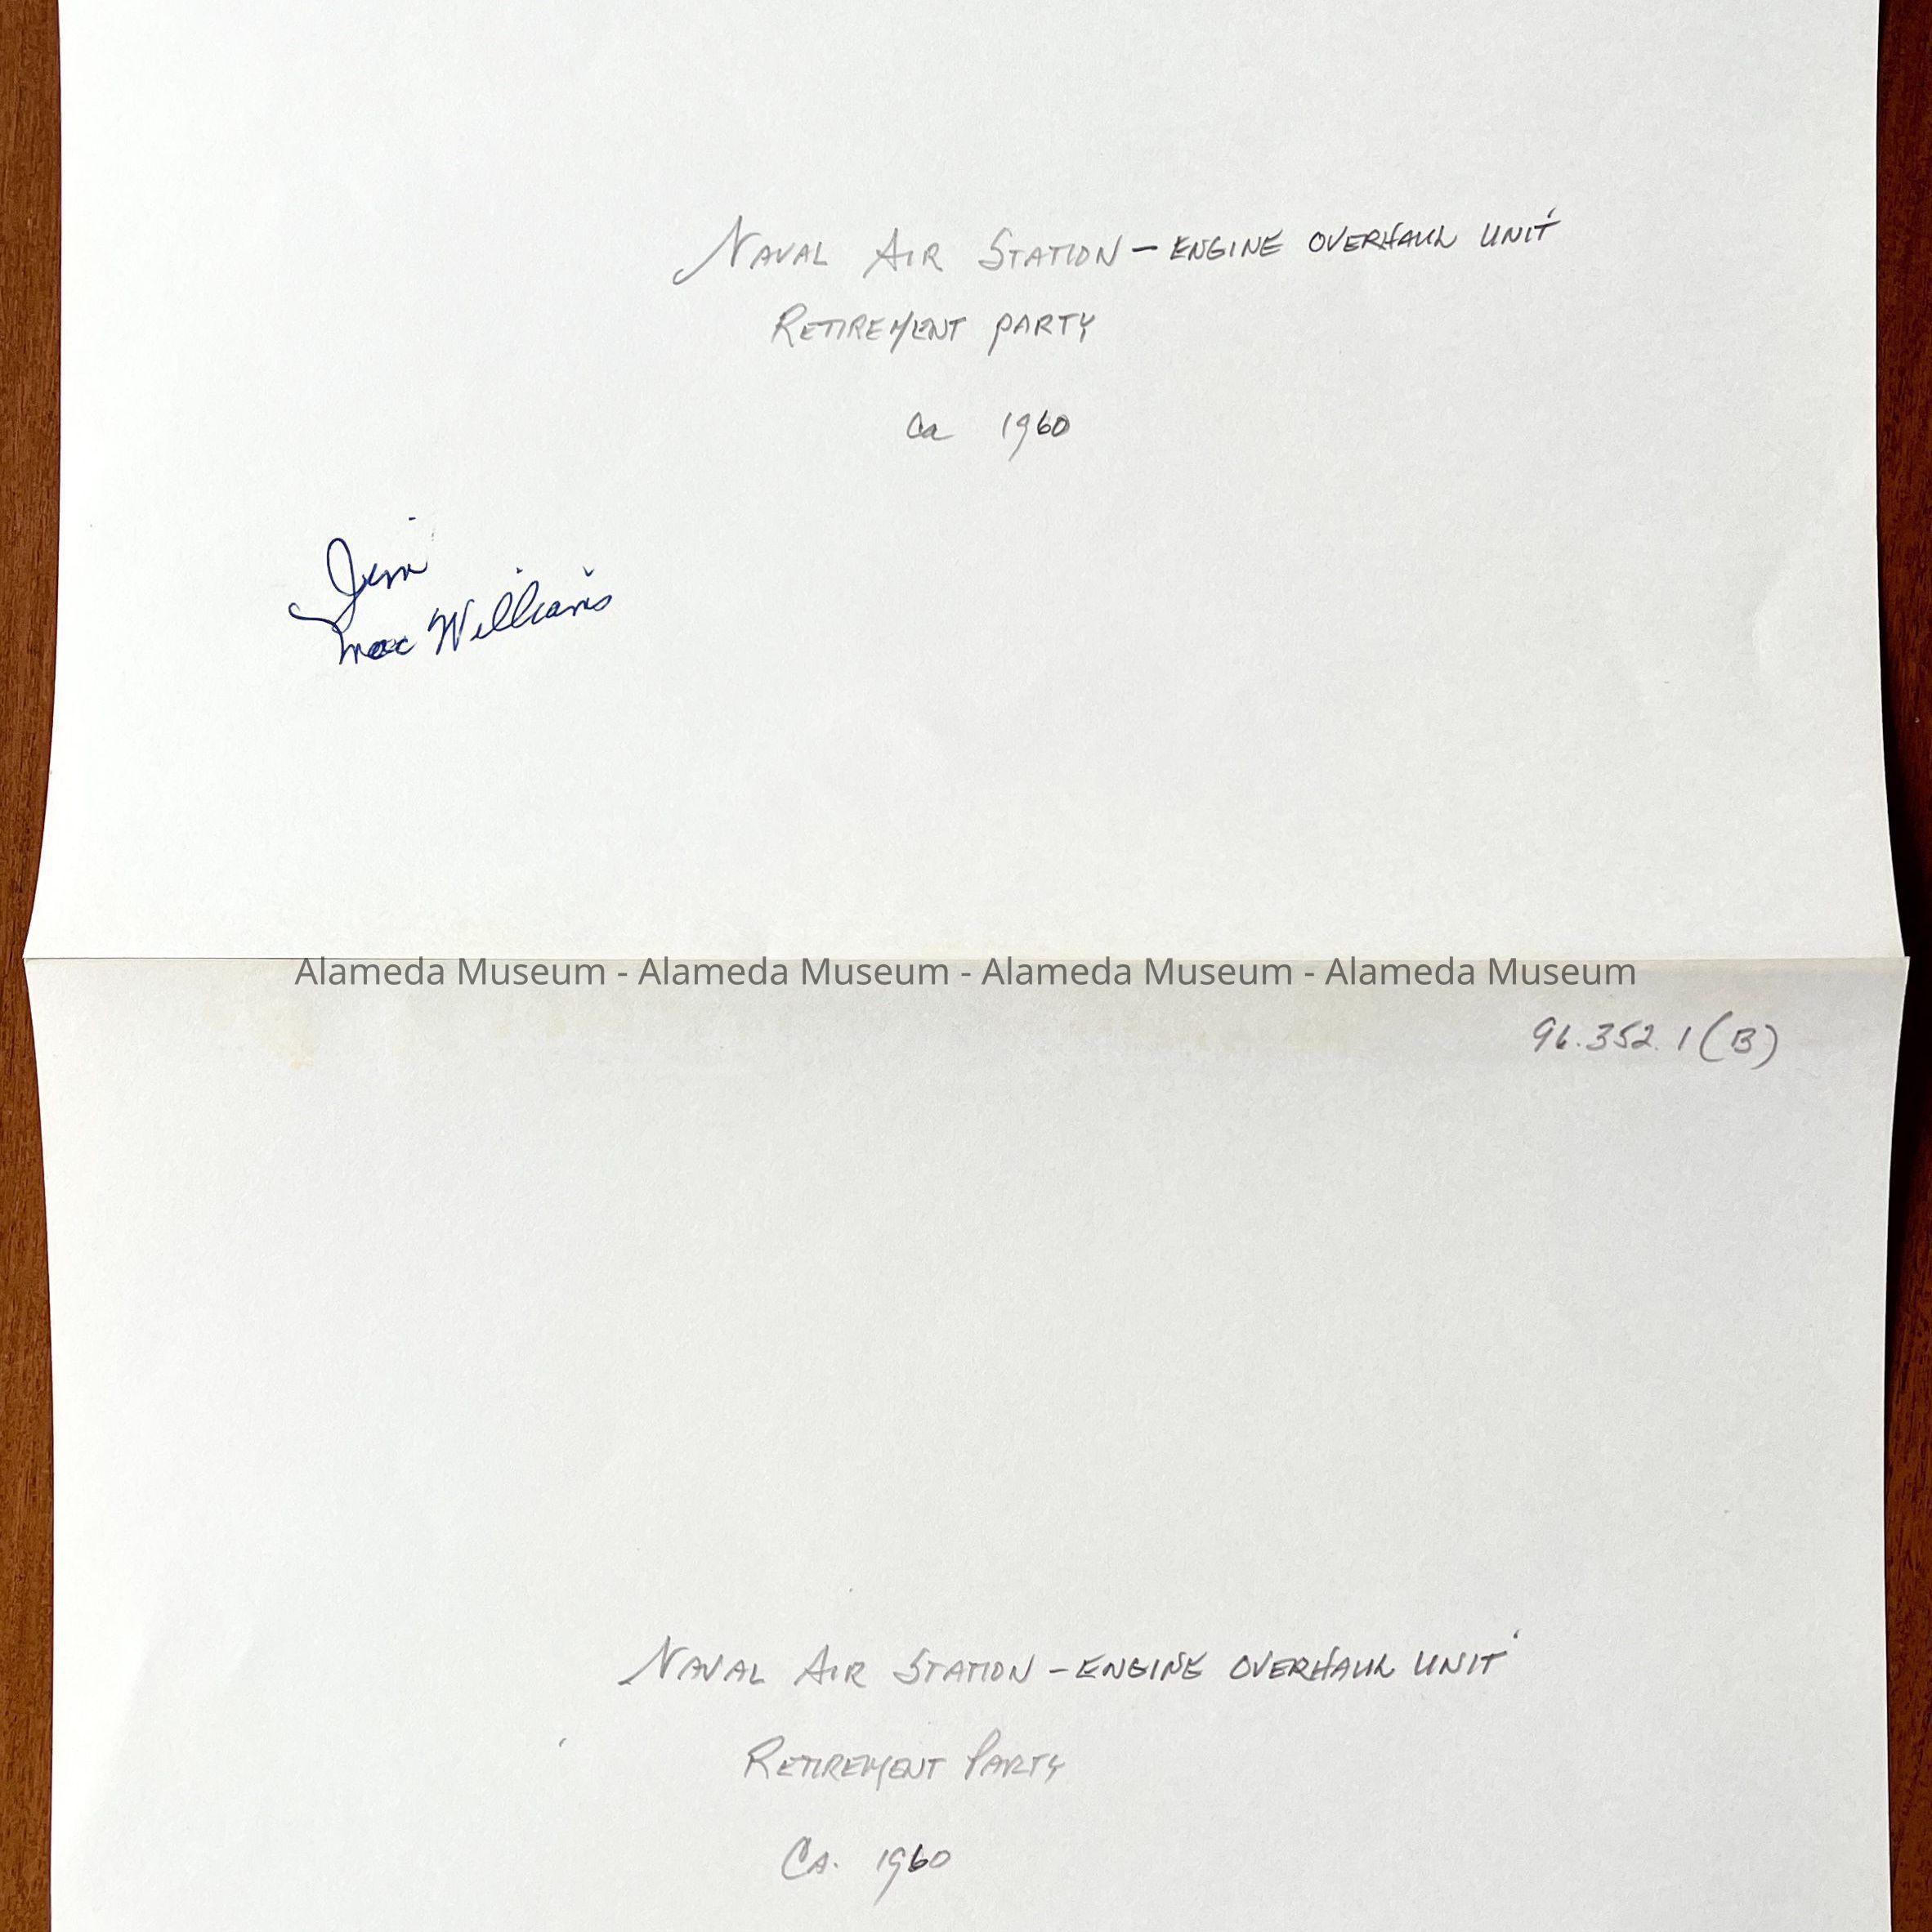 NAVAL AIR STATION - ENGINE OVERHAUL UNIT
RETIREMENT PARTY
Ca 1960
Jim
MacWilliams
Alameda Museum - Alameda Museum - Alameda Museum - Alameda Museum
96.352.1(B)
NAVAL AIR STATION - ENGINE OVERHAUL UNIT
RETIREMENT PARTY
CA. 1960